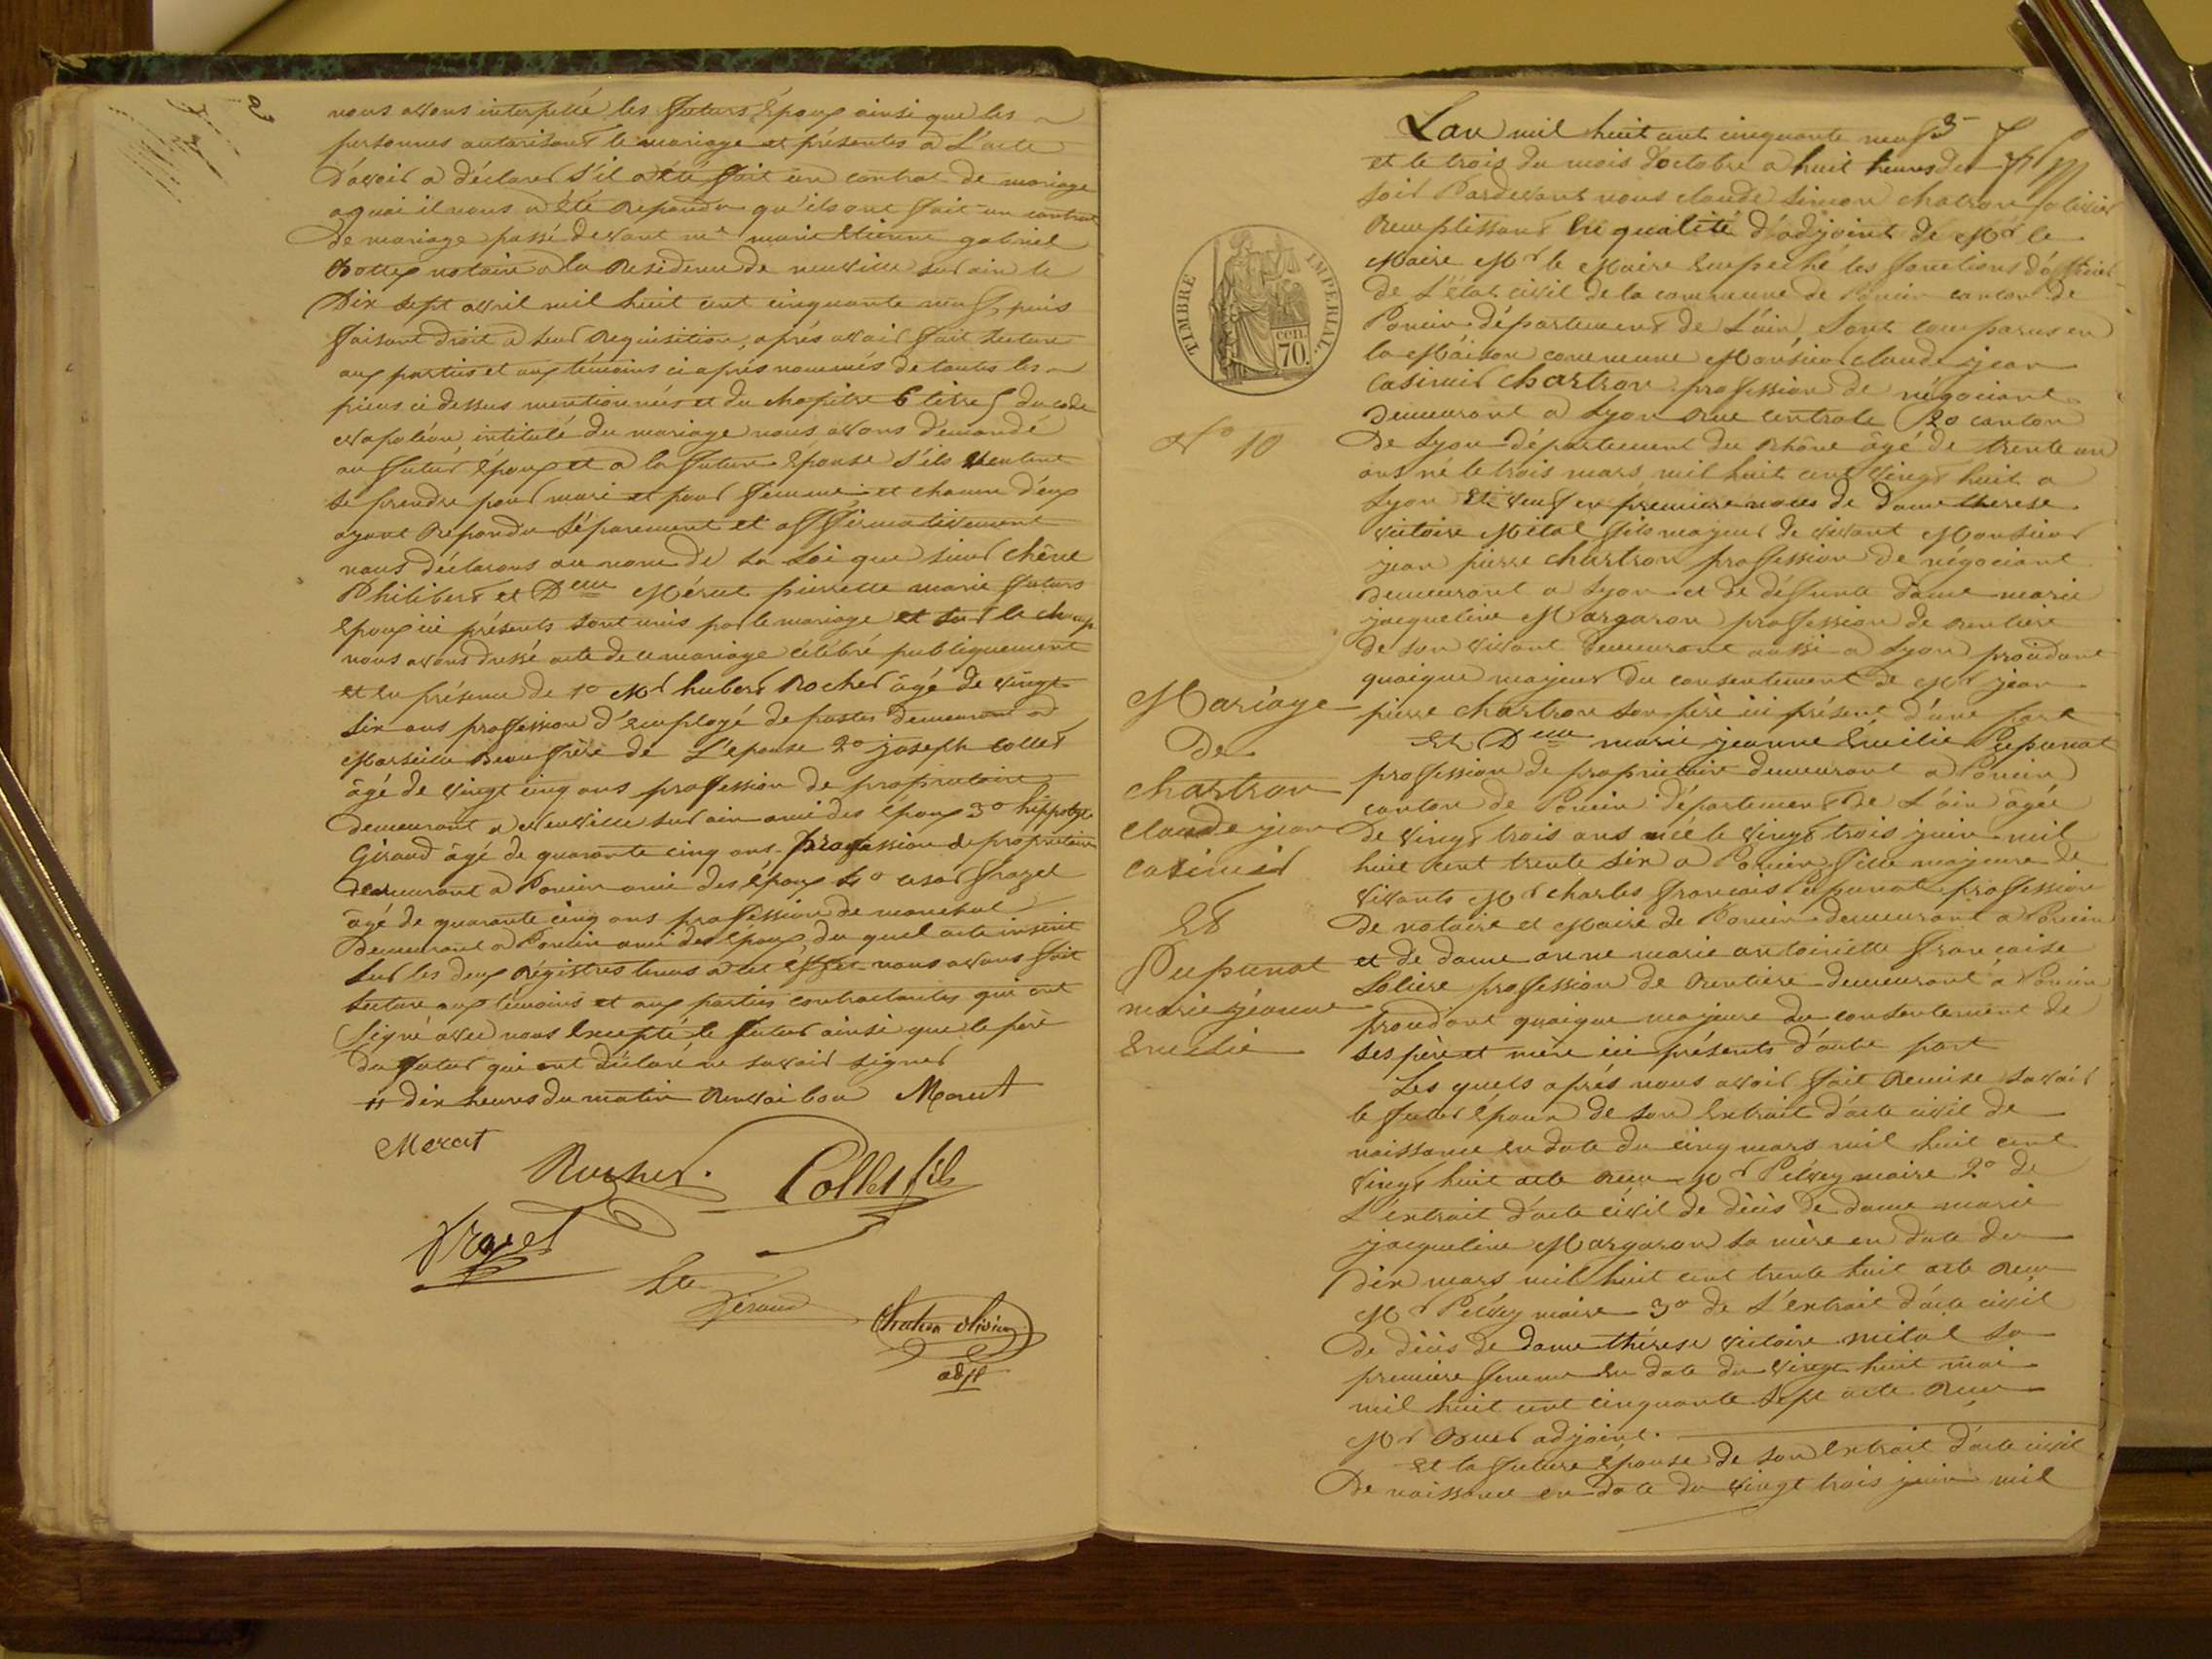 nous avons interpellé les futurs Epoux ainsi que les
personnes autorisant le mariage et présentes a L'acte
d'avoir a déclarer s'il a été fait un contrat de mariage
a quoi il nous a été Repondu qu'ils ont fait un contrat
De mariage passé devant me marie Etienne gabriel
notaire a la Residence de neuville sur ain le
Dix sept avril mil huit cent cinquante neuf, puis
faisant droit a leur Requisition, aprés avoir fait Lecture
aux parties et aux témoins ci aprés nommés de toutes les
pieces ci dessus mentionnées et du chapitre 6 titre 5 du code
Napoléon intitulé du mariage nous avons demandé
au futur époux et a la future Epouse s'ils veulent
se prendre pour mari et pour femme, et chacun d'eux
ayant Repondu Séparement et affirmativement
nous déclarons au nom de La Loi que sieur Chêne
Philibert et Delle Mérut pierrette marie futurs
Epoux ici présents sont unis par le mariage et sur le champ
nous avons dressé acte de ce mariage célébré publiquement
et en présence de 1o Mr hubert Rocher âgé de vingt
six ans profession d'Employé de postes demeurant a
Marseille Beau frère de L'epouse 2o joseph Collet
âgé de vingt cinq ans profession de propriétaire
demeurant a Neuville sur ain ami des époux 3o hippolyte
Giraud âgé de quarante cinq ans profession de propriétaire
demeurant a Poncin ami des époux 4o césar
âgé de quarante cinq ans profession de marechal
Demeurant a Poncin ami des époux, du quel acte inscrit
sur les deux Régistres tenus a cet effet nous avons fait
Lecture aux témoins et aux parties contractantes qui ont
Signé avec nous Excepté le futur ainsi que le père
du futur qui ont déclaré ne savoir signer
# dix heures du matin Renvoi bon Merut
Merut
Rocher. Collet fils
Hte
Giraud
Chatron olivier
adjt
3
Lan mil huit cent cinquante neuf
et le trois du mois d'octobre a huit heures du
soir Pardevant nous claude simon chatron olivier
Remplissant En qualité d'adjoint de Mr le
Maire Mr le Maire Empeché les fonctions d'officier
De L'état civil de la commune de Poncin canton de
Poncin département de L'ain, Sont comparus en
la Maison commune Monsieur claude jean
Casimir Chartron profession de négociant
Demeurant a Lyon Rue Centrale 20 canton
De Lyon département du Rhône âgé de trente un
ans né le trois mars mil huit cent vingt huit a
Lyon Et Veuf en première noces de dame therese
Victoire Mital fils majeur de vivant Monsieur
jean pierre chartron profession de négociant
demeurant a Lyon et de défunte dame marie
jacqueline Margaron profession de rentière
de son vivant demeurant aussi a Lyon procédant
quoique majeur du consentement de Mr jean
pierre chartron son père ici présent d'une part
Et Delle marie jeanne Emilie Pupunat
profession de propriétaire demeurant a Poncin
canton de Poncin département de L'ain âgée
de vingt trois ans née le vingt trois juin mil
huit cent trente six a Poncin, fille majeure de
vivants Mr charles françois Pupunat profession
de notaire et Maire de Poncin demeurant a Poncin
et de dame anne marie antoinette françoise
Soliere profession de Rentière demeurant a Poncin
procédant quoique majeure du consentement de
ses père et mère ici présents d'autre part
Les quels aprés nous avoir fait Remise savoir
le futur époux de son Extrait d'acte civil de
naissance en date du cinq mars mil huit cent
vingt huit acte Recu Mr maire 2o de
L'extrait d'acte civil de décès de dame marie
jacqueline Margaron sa mère en date du
dix mars mil huit cent trente huit acte Recu
Mr maire 3o de L'extrait d'acte civil
de décès de dame thérese victoire mital sa
premiere femme en date du vingt huit mai
mil huit cent cinquante sept acte Recu
Mr adjoint.
Et la future épouse de son Extrait d'acte civil
De naissance en date du vingt trois juin mil
TIMBRE IMPERIAL.
cen.
70.
No 10
Mariage
De
Chartron
Claude jean
casimir
Et
Pupunat
marie jeanne
Emilie